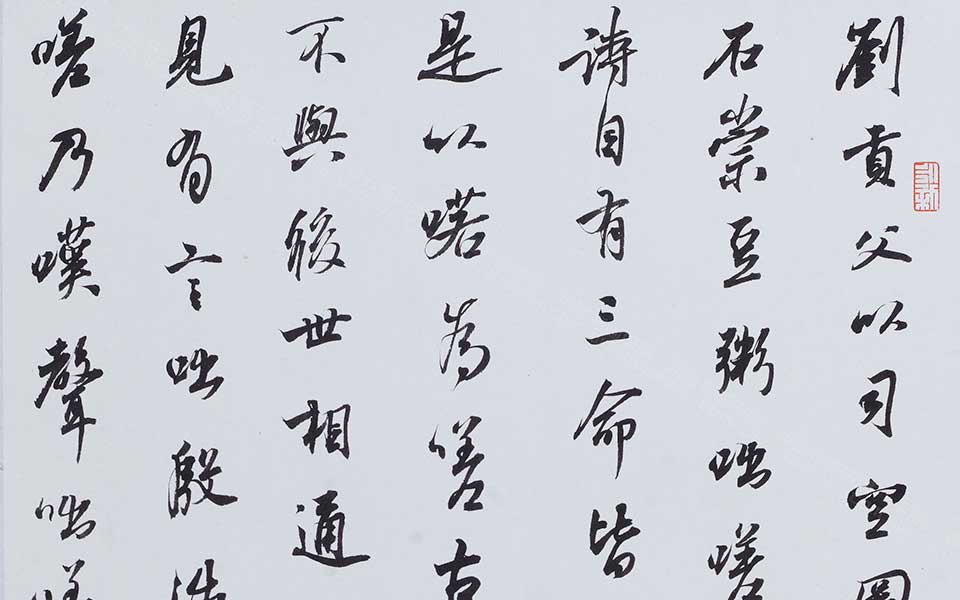 劉貢父以司空圖
石崇豆粥咄嗟
詩自有三命皆
是以喏為嗟古
不與後世相通
見有言咄殷浩
嗟乃嘆聲咄嗟